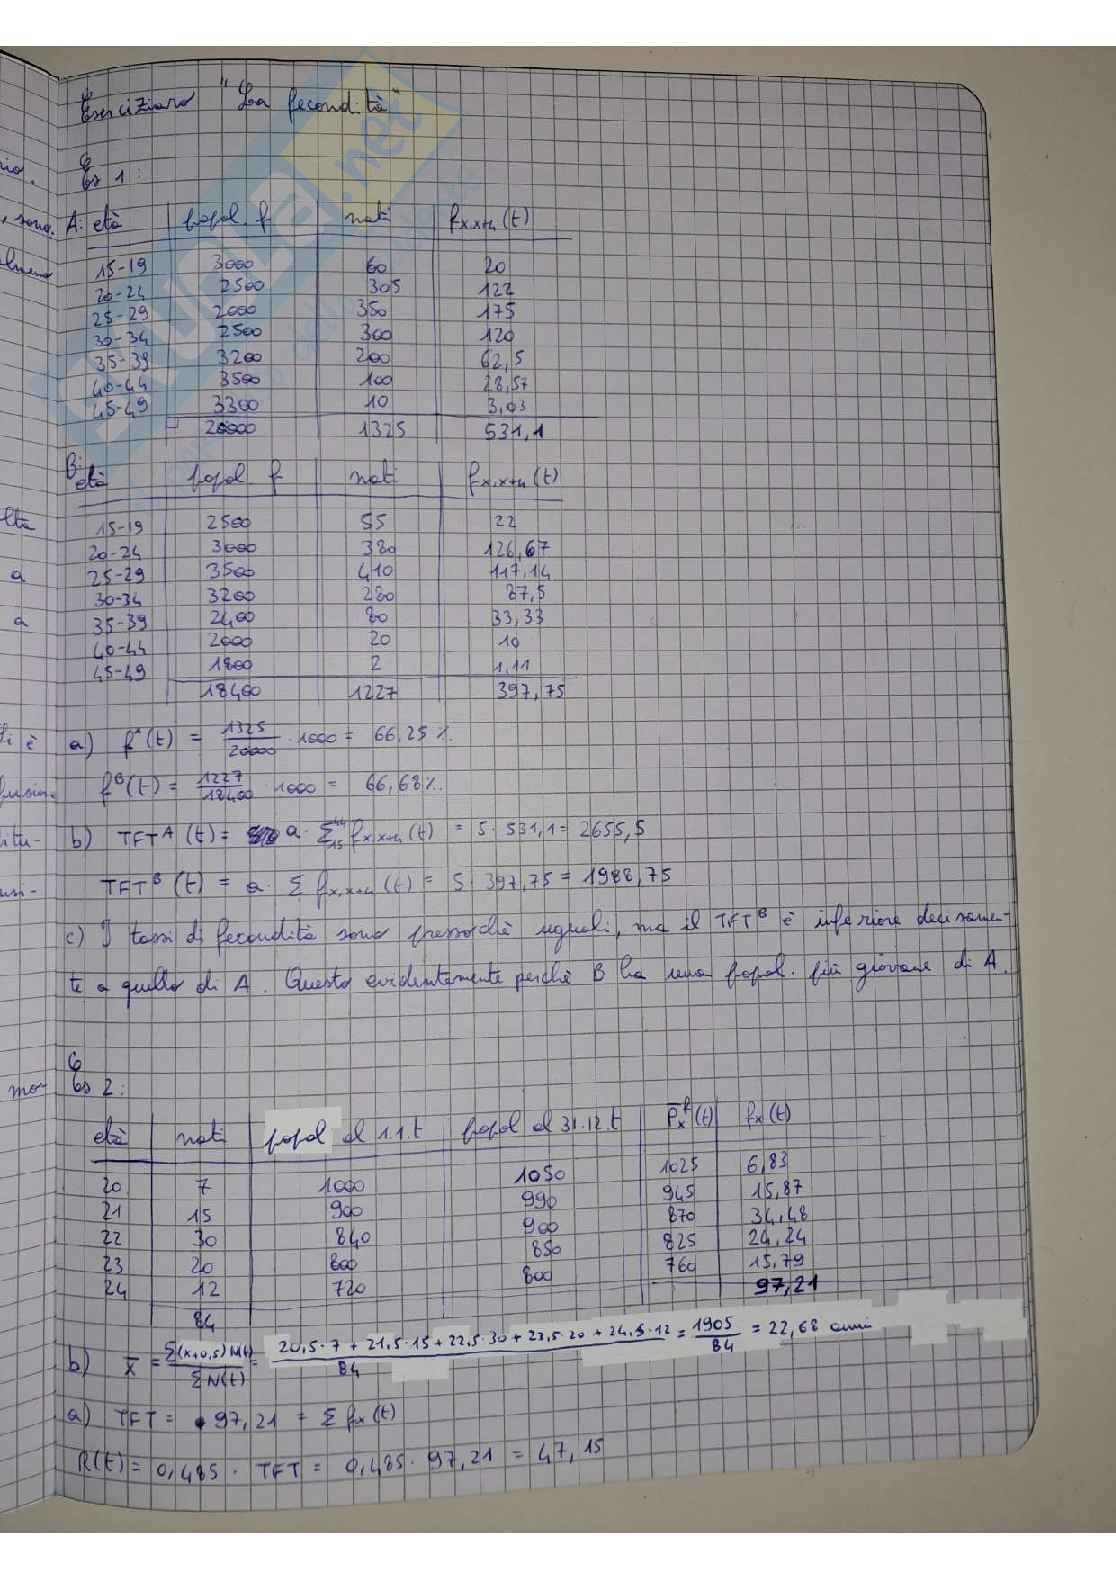 Eserciziario "La fecondità"
Es 1:
A: età popol. f nati fx,x+n (t)
15-19 3000 60 20
20-24 2500 305 122
25-29 2000 350 175
30-34 2500 300 120
35-39 3200 200 62,5
40-44 3500 100 28,57
45-49 3300 10 3,03
20000 1325 531,1
B:
età popol. f nati fx,x+n (t)
15-19 2500 55 22
20-24 3000 380 126,67
25-29 3500 410 117,14
30-34 3200 280 87,5
35-39 2400 80 33,33
40-44 2000 20 10
45-49 1800 2 1,11
18400 1227 397,75
a) fᴬ(t) = 1325/20000 · 1000 = 66,25 ‰
fᴮ(t) = 1227/18400 · 1000 = 66,68 ‰
b) TFTᴬ (t) = a · Σ fx,x+n (t) = 5 · 531,1 = 2655,5
TFTᴮ (t) = a · Σ fx,x+n (t) = 5 · 397,75 = 1988,75
c) I tassi di fecondità sono pressoché uguali, ma il TFTᴮ è inferiore decisamen-
te a quello di A. Questo evidentemente perché B ha una popol. più giovane di A.
Es 2:
età nati popol al 1.1.t popol al 31.12.t P̅xᶠ(t) fx(t)
20 7 1000 1050 1025 6,83
21 15 900 990 945 15,87
22 30 840 900 870 34,48
23 20 800 850 825 24,24
24 12 720 800 760 15,79
97,21
84
b) x̅ = Σ(x+0,5) N(t)/ΣN(t) = 20,5·7 + 21,5·15 + 22,5·30 + 23,5·20 + 24,5·12/84 = 1905/84 = 22,68 anni
a) TFT = 97,21 = Σ fx(t)
R(t) = 0,485 · TFT = 0,485 · 97,21 = 47,15